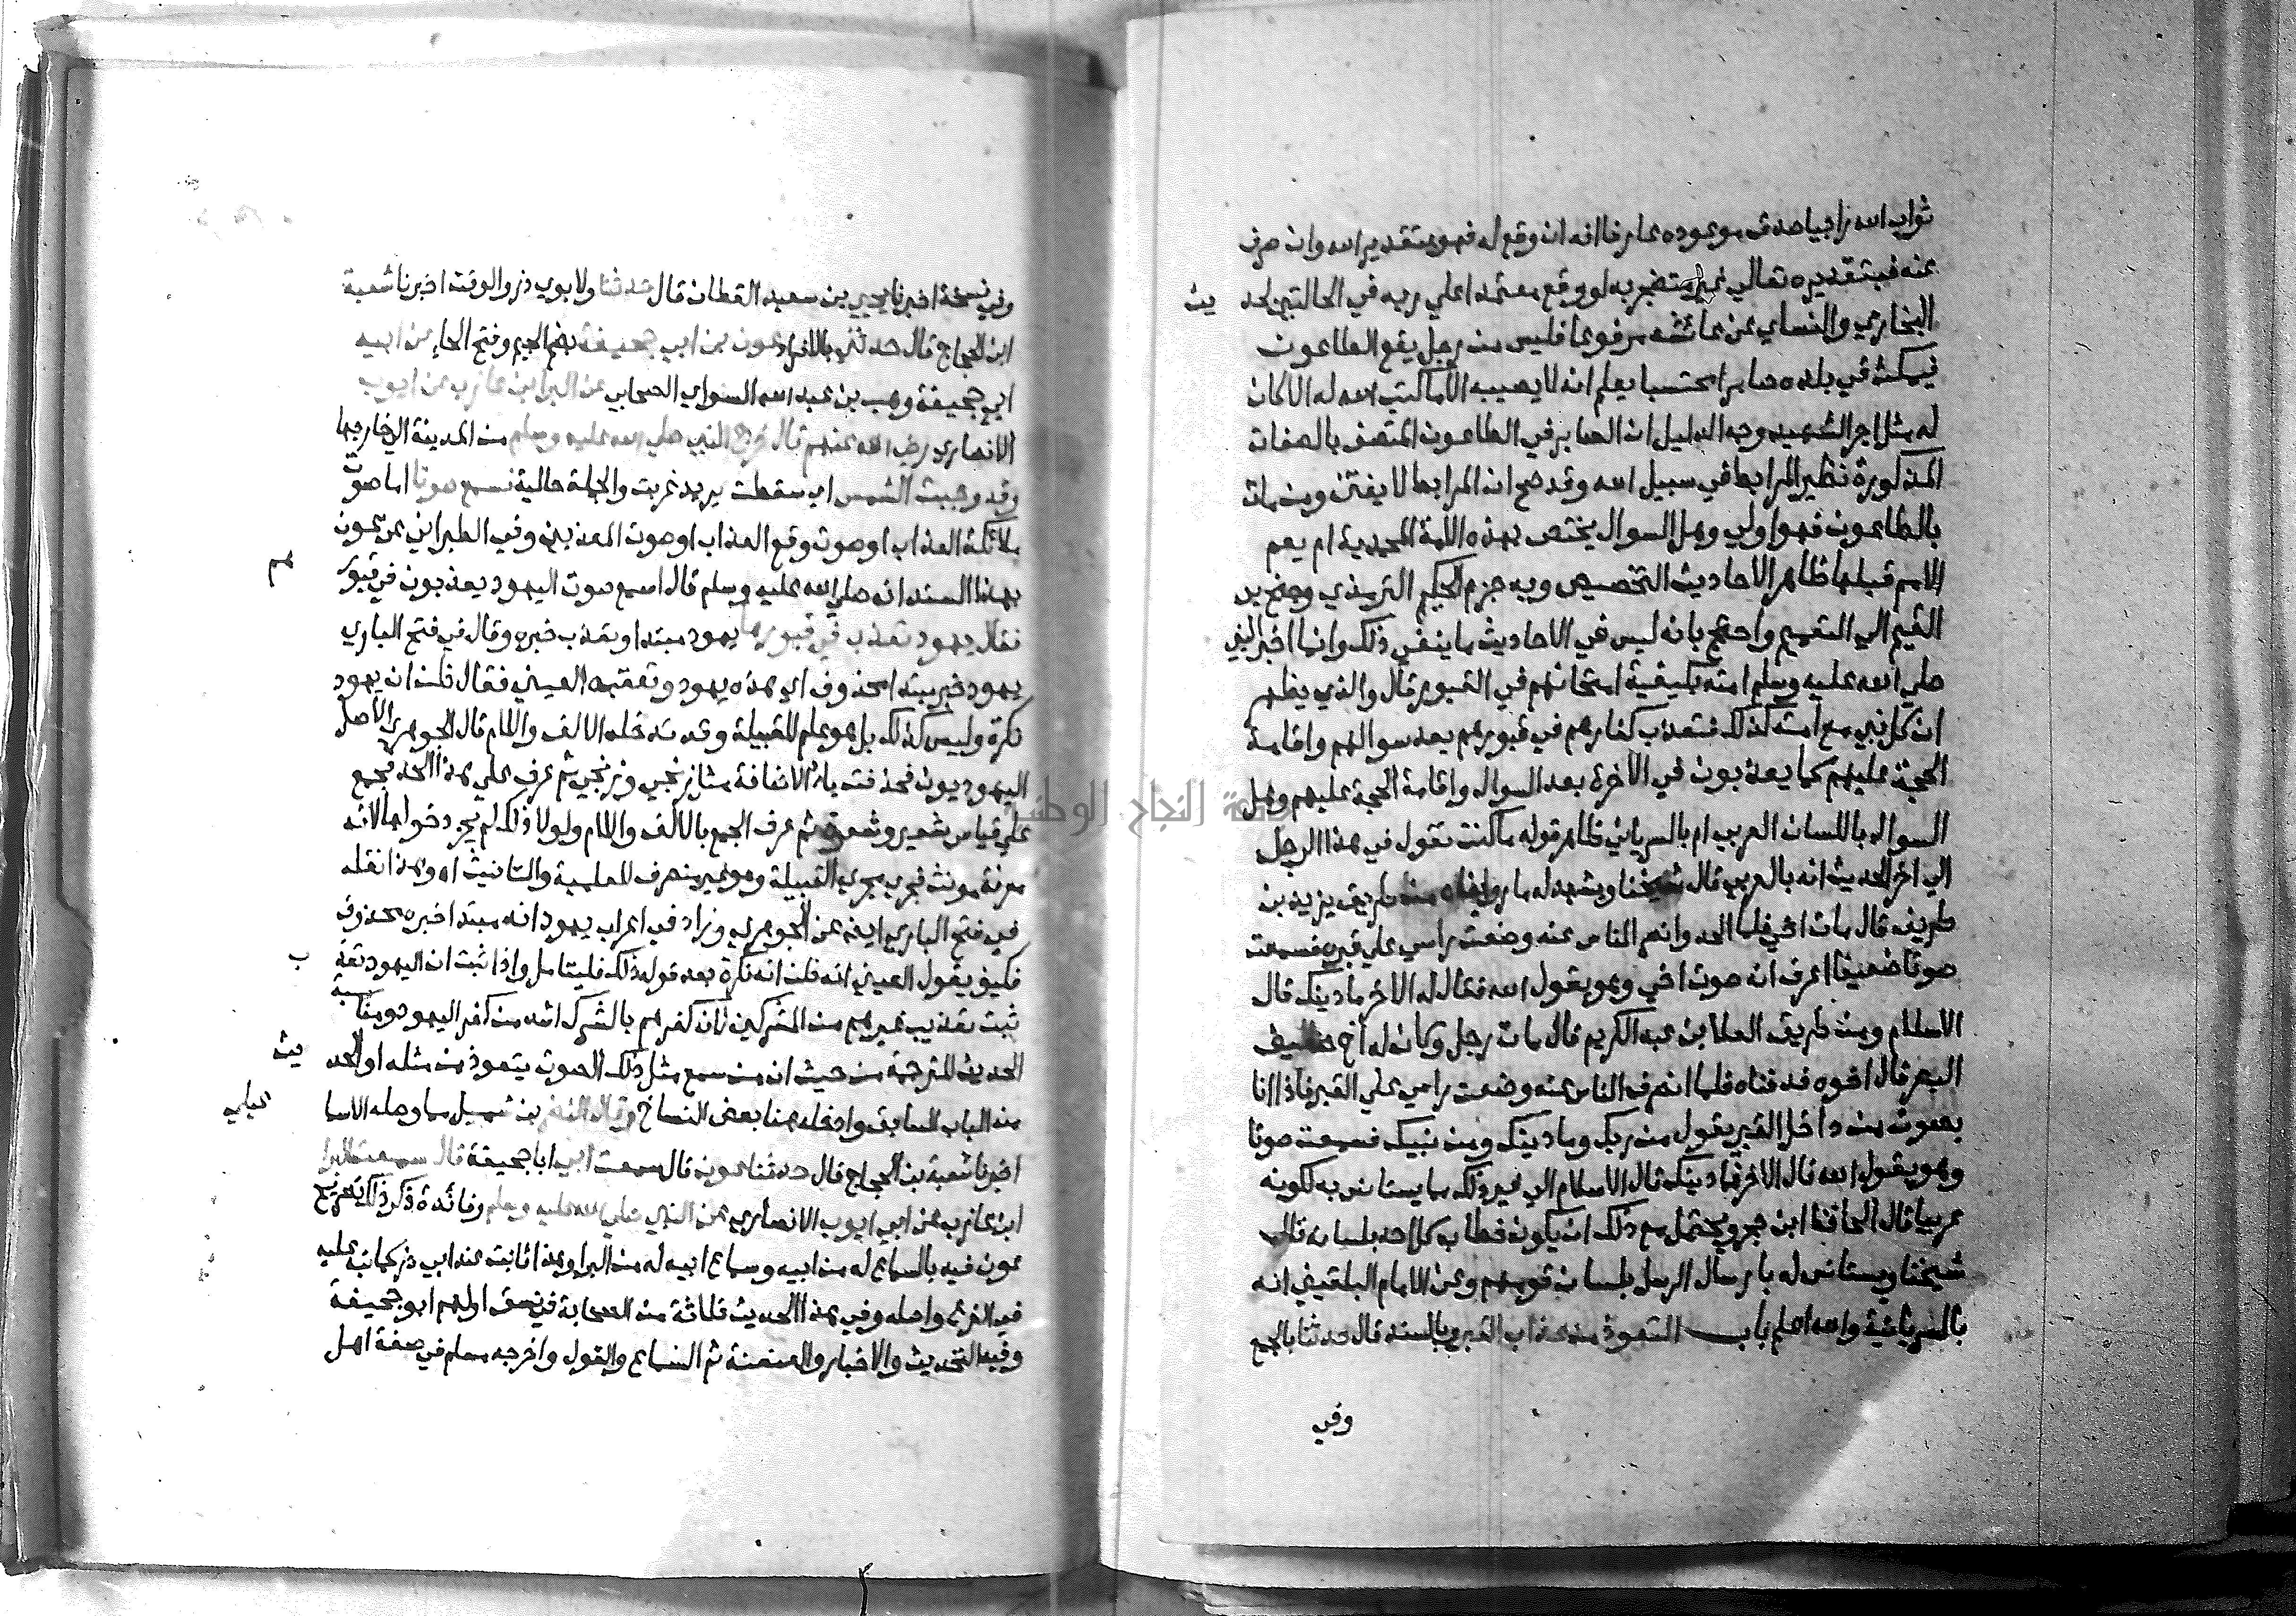 ثواب الله راجيا صدق موعوده عارفا انه ان وقع له فهو بتقدير الله وان صرف
عنه فبتقديره تعالي غير متضجر به لو وقع معتمدا علي ربه في الحالتين لحد يث
البخاري والنساي عن عائشه مرفوعا فليس من رجل يقع الطاعون
فيمكث في بلده صابرا محتسبا يعلم انه لا يصيبه الا ما كتب الله له الا كان
له مثل اجر الشهيد وجه الدليل ان الصابر في الطاعون المتصف بالصفات
المذكورة نظير المرابط في سبيل الله وقد صح ان المرابط لا يفتن ومن مات
بالطاعون فهو اولي وهل السوال يختص بهذه الامة المحمدية ام يعم
الامم قبلها ظاهر الاحاديث التخصيص وبه جزم الحكيم الترمذي وجنح بن
القيم الي التعميم واحتج بانه ليس في الاحاديث ما ينفي ذلك وانما اخبر النبي
صلي الله عليه وسلم امته بكيفية امتحانهم في القبور قال والذي يظهر
ان كل نبي مع امته كذلك فتعذب كفارهم في قبورهم بعد سوالهم واقامة
الحجة عليهم كما يعذبون في الاخرة بعد السوال واقامة الحجة عليهم وهل
السوال باللسان العربي ام بالسرياني ظاهر قوله ما كنت تقول في هذا الرجل
الي اخر الحديث انه بالعربي قال شيخنا ويشهد له ما رويناه من طريق يزيد بن
طريف قال مات اخي فلما الحد وانصرف الناس عنه وضعت راسي علي قبره فسمعت
صوتا ضعيفا اعرف انه صوت اخي وهو يقول الله فقال له الاخر ما دينك قال
الاسلام ومن طريق العلا بن عبد الكريم قال مات رجل وكان له اخ ضعيف
البصر قال اخوه فدفناه فلما انصرف الناس عنه وضعت راسي علي القبر فاذا انا
بصوت من داخل القبر يقول من ربك وما دينك ومن نبيك فسمعت صوتا
وهو يقول الله قال الاخر فما دينك قال الاسلام الي غير ذلك مما يستانس به لكونه
عربيا قال الحافظ ابن حجر ويحتمل مع ذلك ان يكون خطاب كل احد بلسانه قال
شيخنا ويستانس له بارسال الرسل بلسان قومهم وعن الامام البلقيني انه
بالسريانية والله اعلم باب التعوذ من عذاب القبر وبالسند قال حدثنا بالجمع
وفي
وفي نسخة اخبرنا يحيي بن سعيد القطان قال حدثنا ولابوي ذر والوقت اخبرنا شعبة
ابن الحجاج قال حدثني بالافراد عون بن ابي جحيفة بضم الجيم وفتح الحا عن ابيه
ابي جحيفة وهب بن عبد الله السواي الصحابي عن البرا بن عازب عن ايوب
الانصاري رضي الله عنهم قال خرج النبي صلي الله عليه وسلم من المدينة الي خارجها
وقد وجبت الشمس اي سقطت يريد غربت والجملة حالية فسمع صوتا اما صوت
ملائكة العذاب او صوت وقع العذاب او صوت المعذبين وفي الطبراني عن عون
بهذا السند انه صلي الله عليه وسلم قال اسمع صوت اليهود يعذبون في قبور هم
فقال يهود تعذب في قبورها يهود مبتدا وتعذب خبره وقال في فتح الباري
يهود خبر مبتدا محذوف اي هذه يهود وتعقبه العيني فقال ظن ان يهود
نكرة وليس كذلك بل هو علم للقبيلة وقد تدخله الالف واللام قال الجوهري الاصل
اليهوديون فحذفت ياء الاضافة مثل زنجي وزنج ثم عرف علي هذا الحد فجمع
علي قياس شعير وشعيرة ثم عرف الجمع بالالف واللام ولولا ذلك لم يجز دخولها لانه
معرفة مونث فجري مجري القبيلة وهو غير منصرف للعلمية والتانيث اه وهذا نقله
في فتح الباري ايضا عن الجوهري وزاد في اعراب يهود انه مبتدا خبره محذوف
فكيف يقول العيني انه ظن انه نكرة بعد قوله ذلك فليتامل واذا ثبت ان اليهود تعذ ب
ثبت تعذيب غيرهم من المشركين لان كفرهم بالشرك اشد من كفر اليهود ومناسبة
الحديث للترجمة من حيث ان من سمع مثل ذلك الصوت يتعوذ من مثله او الحد يث
من الباب السابق وادخله هنا بعض النساخ وقال النضر بن شميل مما وصله الاسما عيلي
اخبرنا شعبة بن الحجاج قال حدثنا عون قال سمعت ابي ابا جحيفة قال سمعت البرا
ابن عازب عن ابي ايوب الانصاري عن النبي صلي الله عليه وسلم وفائدة ذكر ذلك تصريح
عون فيه بالسماع له من ابيه وسماع ابيه له من البرا وهذا ثابت عند ابي ذر كما نبه عليه
في الفرع واصله وفي هذا الحديث ثلاثة من الصحابة في نسق اولهم ابو جحيفة
وفيه التحديث والاخبار والعنعنة ثم السماع والقول واخرجه مسلم في صفة اهل